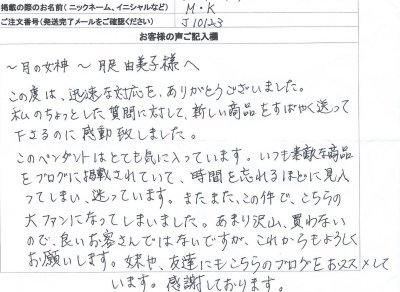 掲載の際のお名前(ニックネーム、イニシャルなど)
M・K
ご注文番号(発送完了メールをご確認ください)
J10123
お客様の声ご記入欄
~月の女神~月足 由美子様へ
この度は、迅速な対応を、ありがとうございました。
私のちょっとした質問に対して、新しい商品をすばやく送って
下さるのに感動致しました。
このペンダントはとても気に入っています。いつも素敵な商品
をブログに掲載されていて、時間を忘れるほどに見入
ってしまい、迷っています。またまた、この件で、こちらの
大ファンになってしまいました。あまり沢山、買わない
ので、良いお客さんではないですが、これからもよろしく
お願いします。妹や、友達にもこちらのブログをおススメして
います。感謝しております。